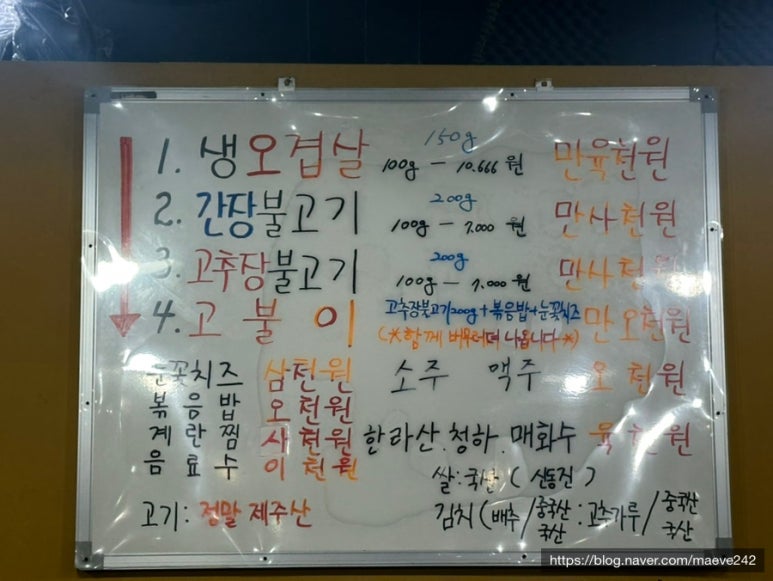 1. 생오겹살 150g 100g – 10.666 원 만육천원
2. 간장불고기 200g 100g – 7.000 원 만사천원
3. 고추장불고기 200g 100g – 7.000 원 만사천원
4. 고 불 이 고추장불고기200g+볶음밥+눈꽃치즈 만 오천원
(※함께 버무려져 나옵니다※)
눈꽃치즈 삼천원 소주 맥주 오 천원
볶음밥 오천원
계란찜 사천원 한라산.청하.매화수 육천원
음료수 이천원
쌀:국산 ( 신동진 )
고기: 정말 제주산 김치 (배추/중국산 국산 : 고추가루/중국산 국산
https://blog.naver.com/maeve242